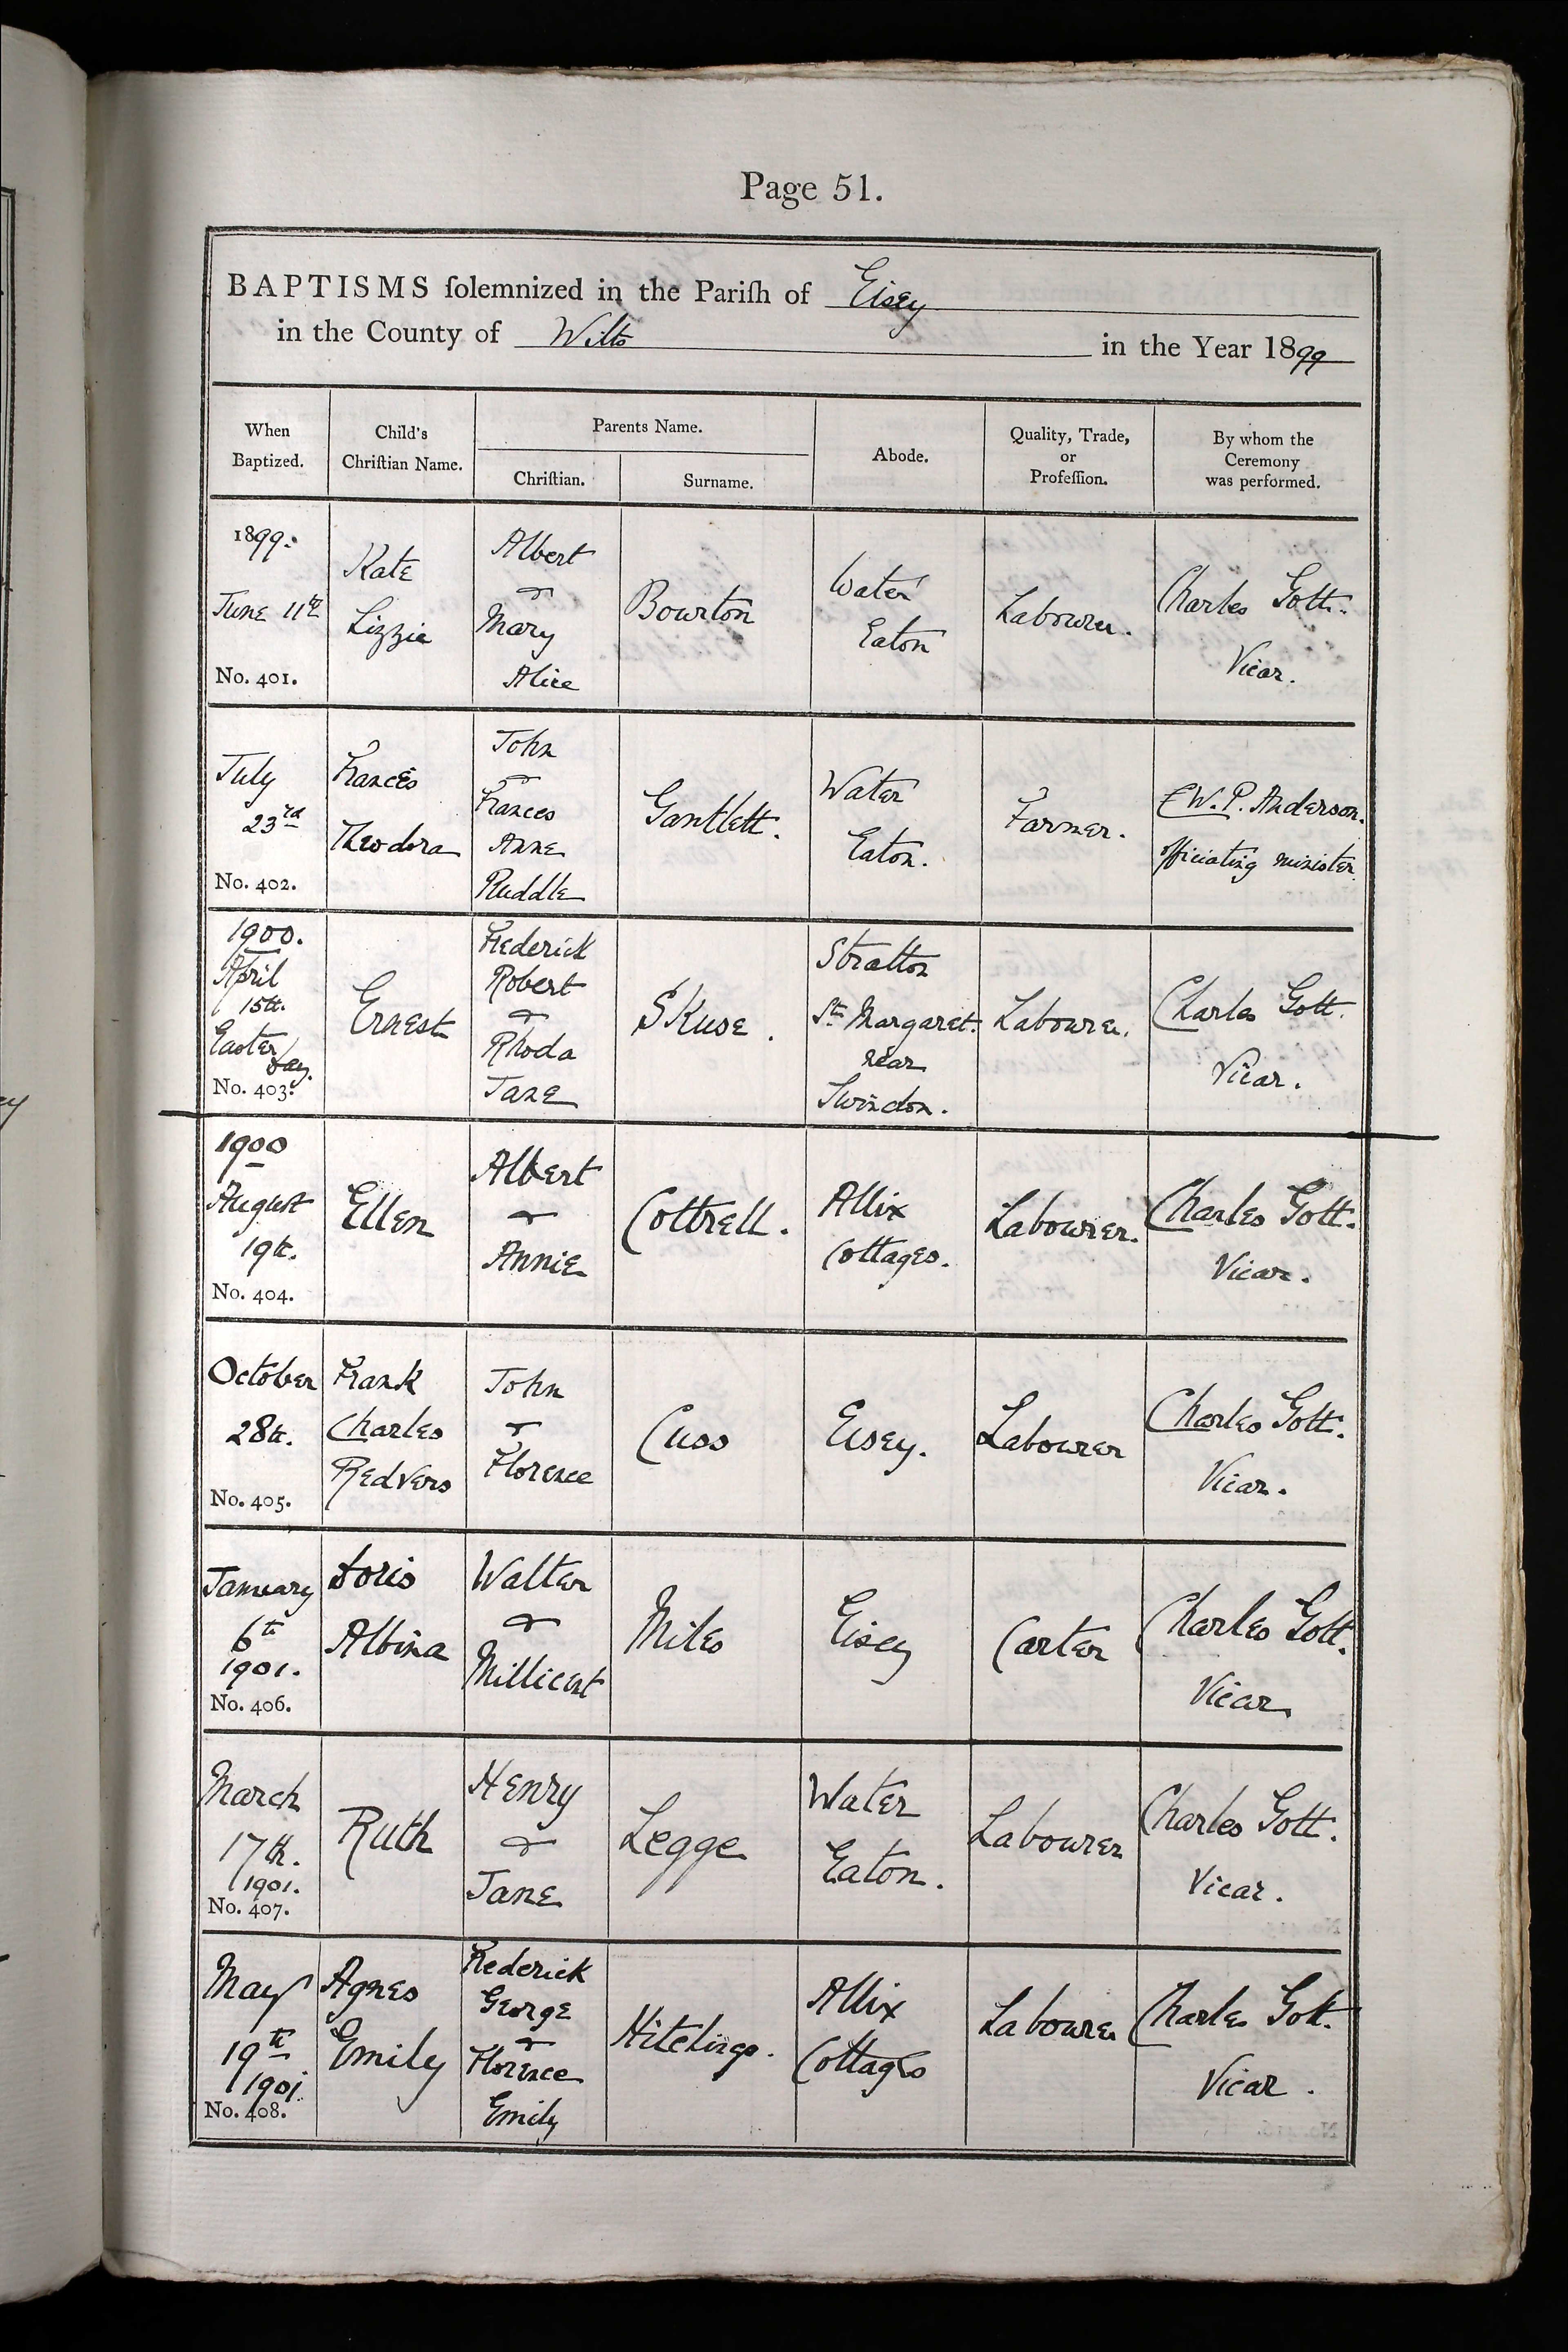 Page 51.
BAPTISMS ſolemnized in the Pariſh of Eisey
in the County of Wilts in the Year 1899
When
Baptized.
Child's
Chriſtian Name.
Parents Name.
Chriſtian.
Surname.
Abode.
Quality, Trade,
or
Profeſſion.
By whom the
Ceremony
was performed.
1899.
June 11th
No. 401.
Kate
Lizzie
Albert
&
Mary
Alice
Bourton
Water
Eaton
Labourer.
Charles Gott.
Vicar.
July
23rd
No. 402.
Frances
Theodora
John
&
Frances
Anne
Ruddle
Gantlett.
Water
Eaton.
Farmer.
W. P. Anderson.
officiating minister.
1900.
April
15th.
Easter
Day.
No. 403.
Ernest
Frederick
Robert
&
Rhoda
Jane
Skuse.
Stratton
St Margaret.
near
Swindon.
Labourer.
Charles Gott.
Vicar.
1900
August
19th.
No. 404.
Ellen
Albert
&
Annie
Cottrell.
Allix
Cottages.
Labourer.
Charles Gott.
Vicar.
October
28th.
No. 405.
Frank
Charles
Redvers
John
&
Florence
Cuss
Eisey.
Labourer
Charles Gott.
Vicar.
January
6th
1901.
No. 406.
Doris
Albina
Walter
&
Millicent
Miles
Eisey
Carter
Charles Gott.
Vicar
March
17th.
1901.
No. 407.
Ruth
Henry
&
Jane
Legge
Water
Eaton.
Labourer
Charles Gott.
Vicar.
May
19th
1901
No. 408.
Agnes
Emily
Frederick
George
&
Florence
Emily
Hitchings.
Allix
Cottages
Labourer
Charles Gott.
Vicar.